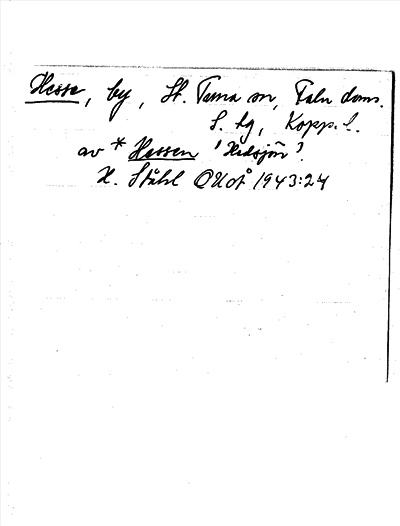 Hesse, by, St. Tuna sn, Falu doms.
S. tg, Kopp. l.
av * Hessen 'Hedsjön'.
H. Ståhl OUoÅ 1943:24